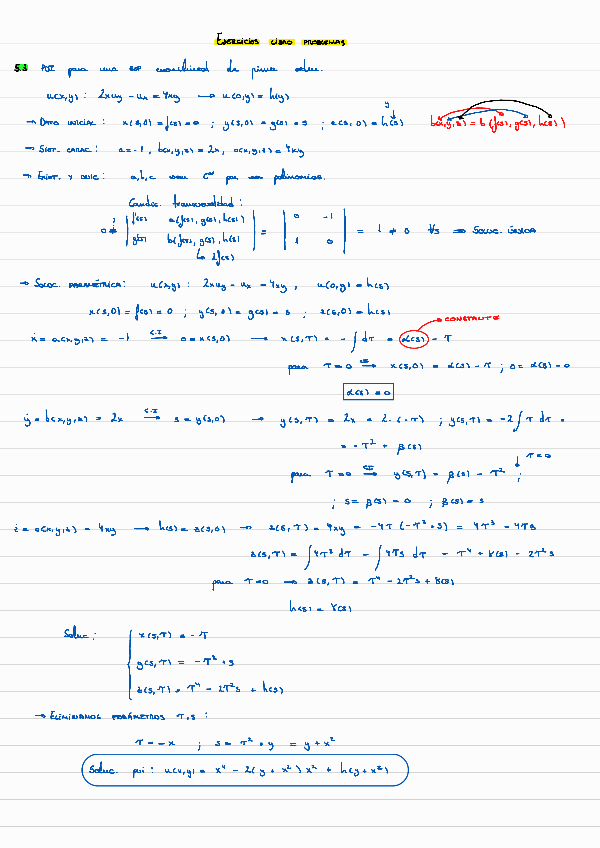 EJERCICIOS LIBRO PROBLEMAS
5.3 PVI para una EDP cuasilineal de primer orden.
u(x,y) : 2xuy - ux = 4xy → u(0,y) = h(y)
y
→ DATO INICIAL : x(s,0) = f(s) = 0 ; y(s,0) = g(s) = s ; z(s,0) = h(s) b(x,y,z) = b(f(s), g(s), h(s))
→ SIST. CARAC : a = -1, b(x,y,z) = 2x, c(x,y,z) = 4xy
→ EXIST. Y UNIC : a,b,c son C∞ por ser polinomios.
Condic. transversalidad :
0 ≠ | f'(s) a(f(s), g(s), h(s)) | = | 0 -1 |
| g'(s) b(f(s), g(s), h(s)) | | 1 0 | = 1 ≠ 0 ∀s ⇒ SOLUC. ÚNICA
↳ 2f(s)
→ SOLUC. PARAMÉTRICA : u(x,y) : 2xuy - ux = 4xy, u(0,y) = h(s)
x(s,0) = f(s) = 0 ; y(s,0) = g(s) = s ; z(s,0) = h(s)
CONSTANTE
ẋ = a(x,y,z) = -1 →C.I 0 = x(s,0) → x(s,τ) = -∫dτ = α(s) - τ
para τ=0 →CI x(s,0) = α(s) - τ ; 0 = α(s) - 0
α(s) = 0
ẏ = b(x,y,z) = 2x →C.I s = y(s,0) → y(s,τ) = 2x = 2·(-τ) ; y(s,τ) = -2∫τ dτ =
= -τ² + β(s)
τ=0
para τ=0 →CI y(s,τ) = β(s) - τ² ;
; s = β(s) - 0 ; β(s) = s
ż = c(x,y,z) = 4xy → h(s) = z(s,0) → z(s,τ) = 4xy = -4τ(-τ²+s) = 4τ³ - 4τs
z(s,τ) = ∫4τ³ dτ - ∫4τs dτ = τ⁴ + γ(s) - 2τ²s
para τ=0 → z(s,τ) = τ⁴ - 2τ²s + γ(s)
h(s) = γ(s)
Soluc : { x(s,τ) = -τ
y(s,τ) = -τ² + s
z(s,τ) = τ⁴ - 2τ²s + h(s)
→ ELIMINAMOS PARÁMETROS τ,s :
τ = -x ; s = τ² + y = y + x²
Soluc. pvi : u(x,y) = x⁴ - 2(y + x²)x² + h(y+x²)